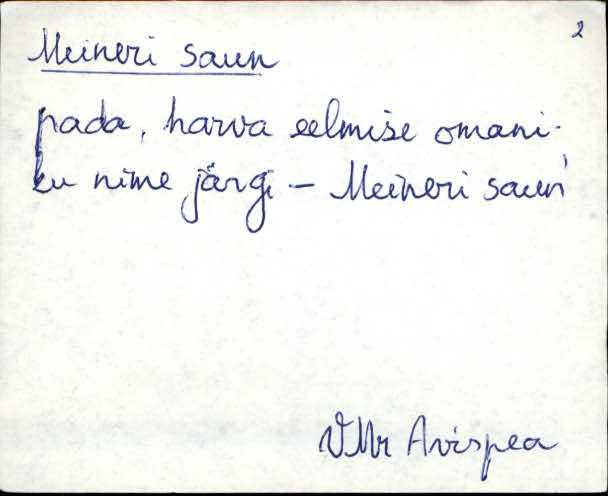 2
Meineri saun
pada, harva eelmise omani-
ku nime järgi – Meineri saun
VMr Avispea